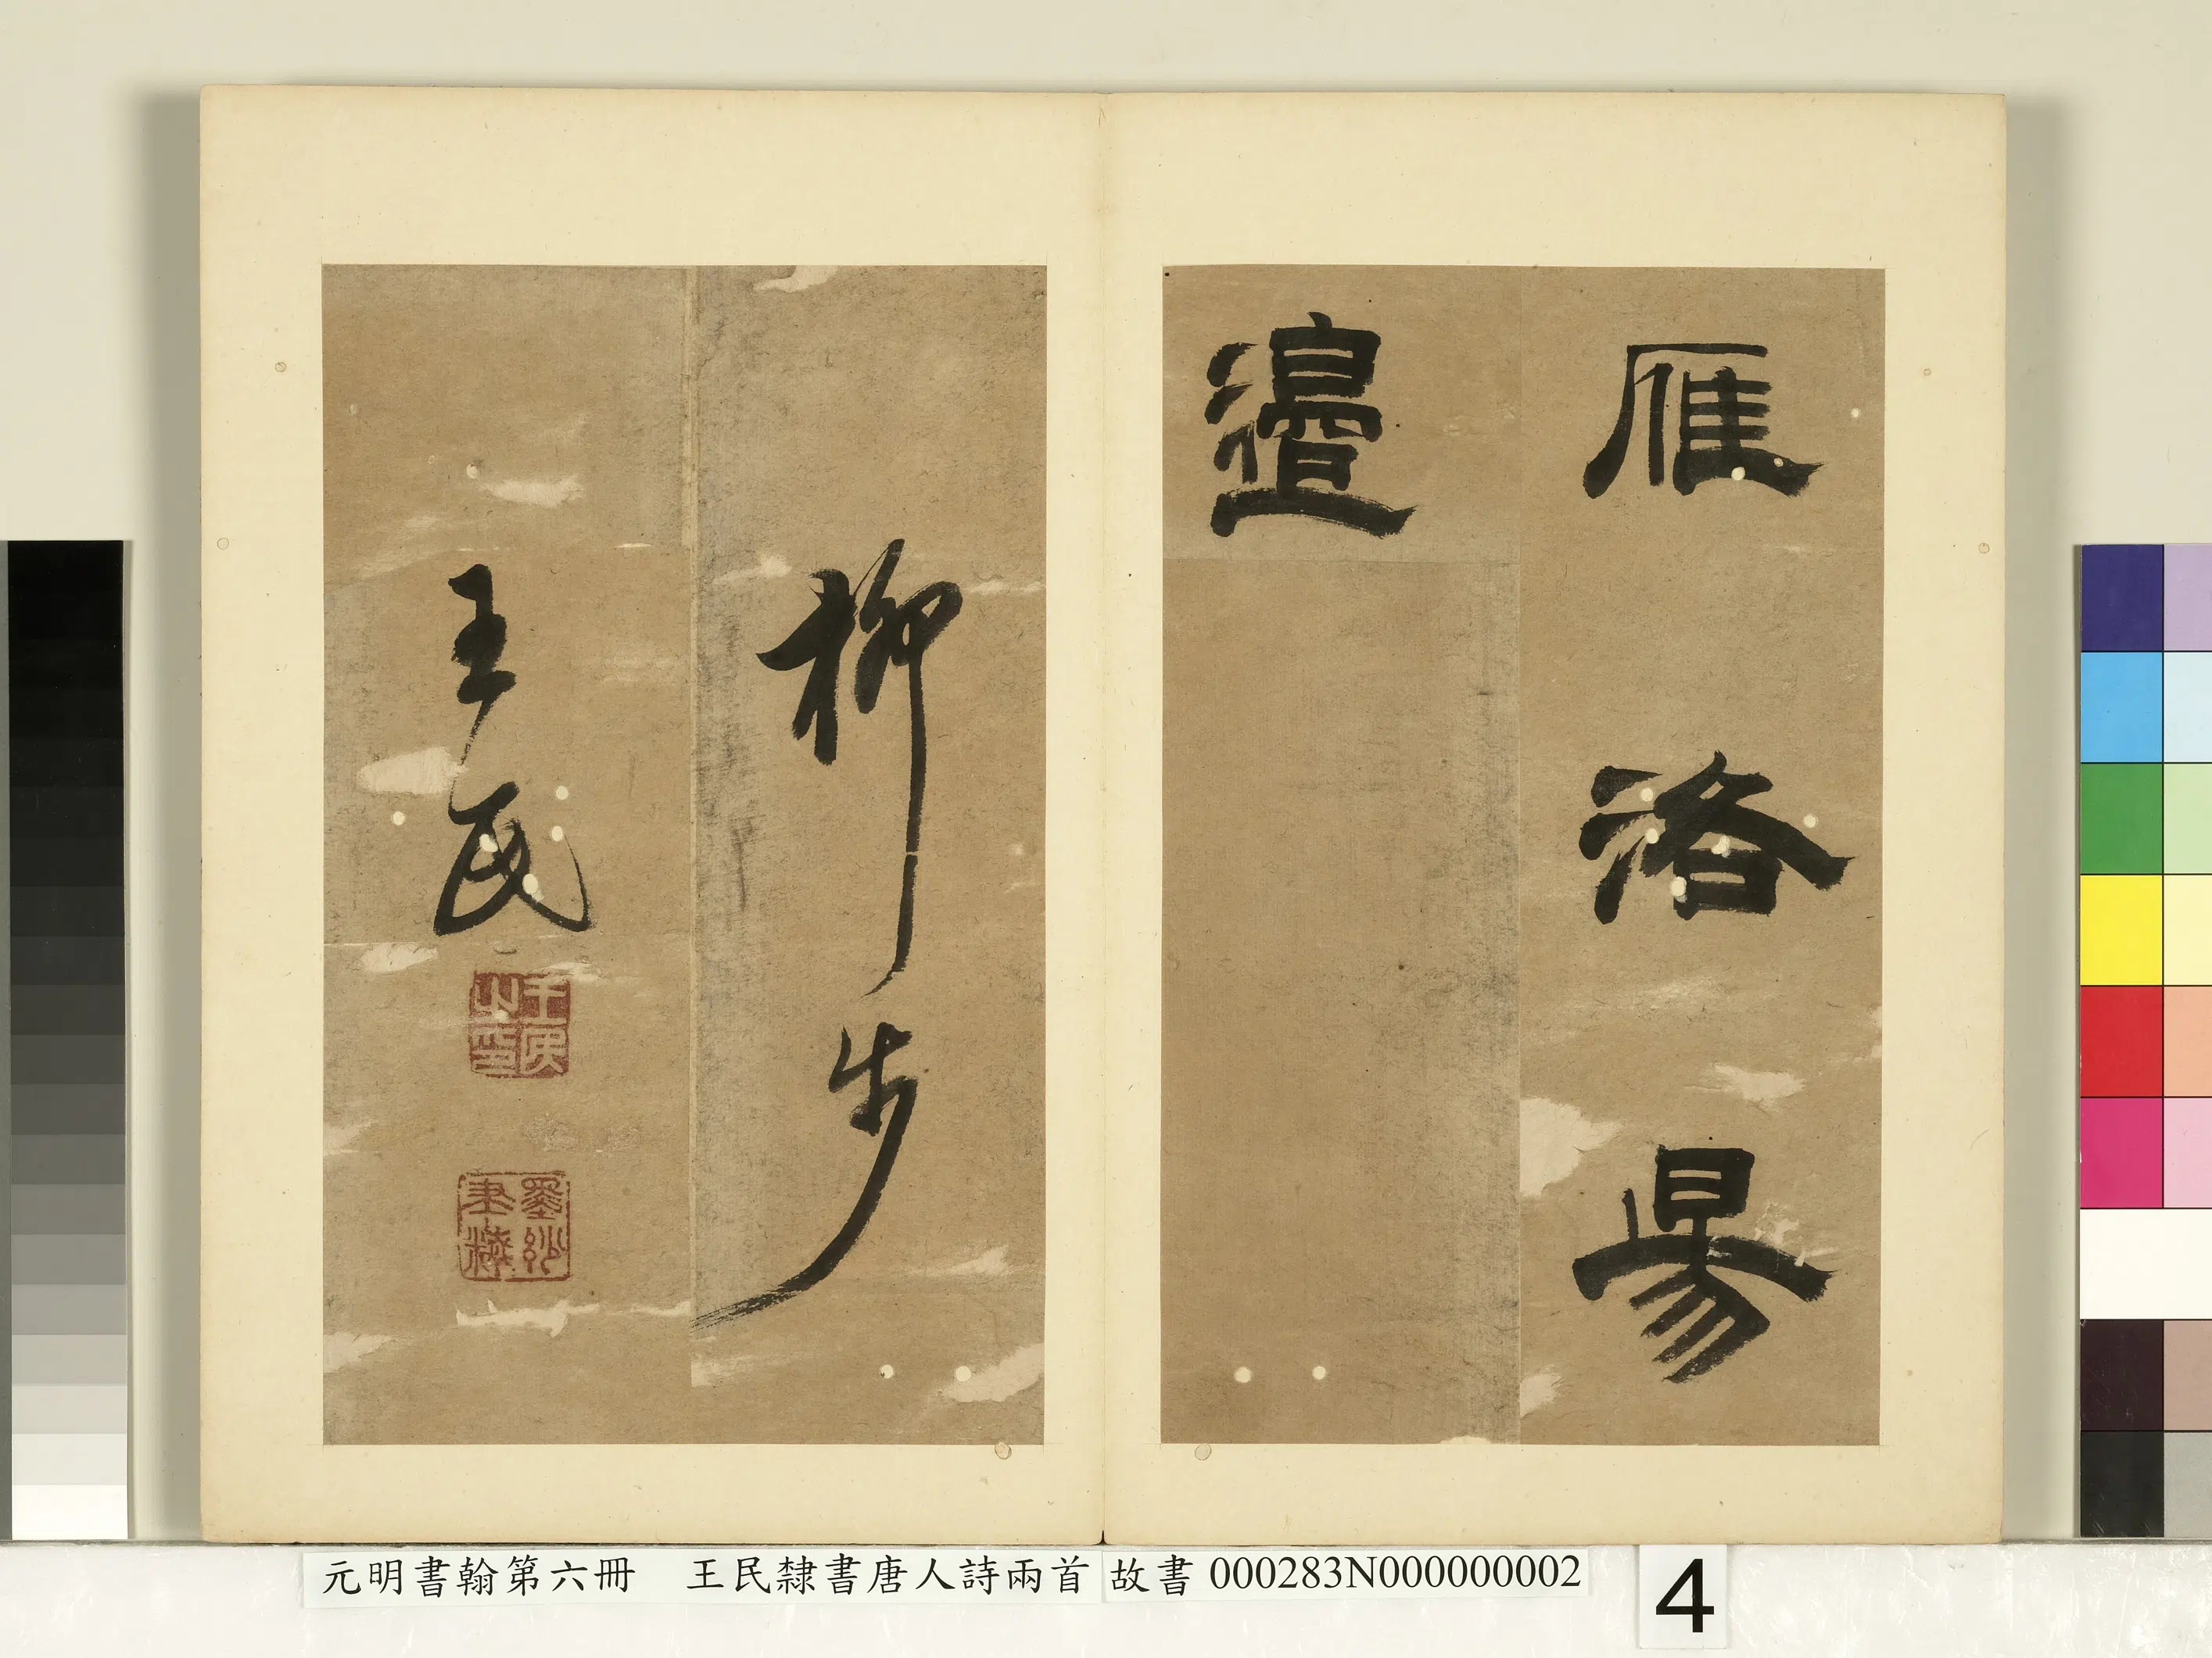 雁洛昜
邉
柳步
王民
王民之印
墨妙筆精
元明書翰第六冊　王民隸書唐人詩兩首　故書 000283N000000002
4